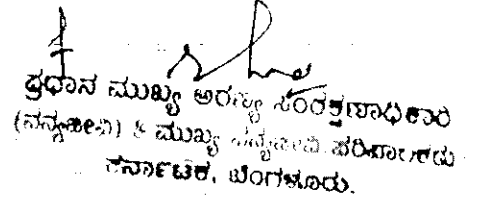 ಪ್ರಧಾನ ಮುಖ್ಯ ಅರಣ್ಯ ಸಂರಕ್ಷಣಾಧಿಕಾರಿ
(ವನ್ಯಜೀವಿ) & ಮುಖ್ಯ ವನ್ಯಜೀವಿ ಪರಿಪಾಲಕರು
ಕರ್ನಾಟಕ, ಬೆಂಗಳೂರು.